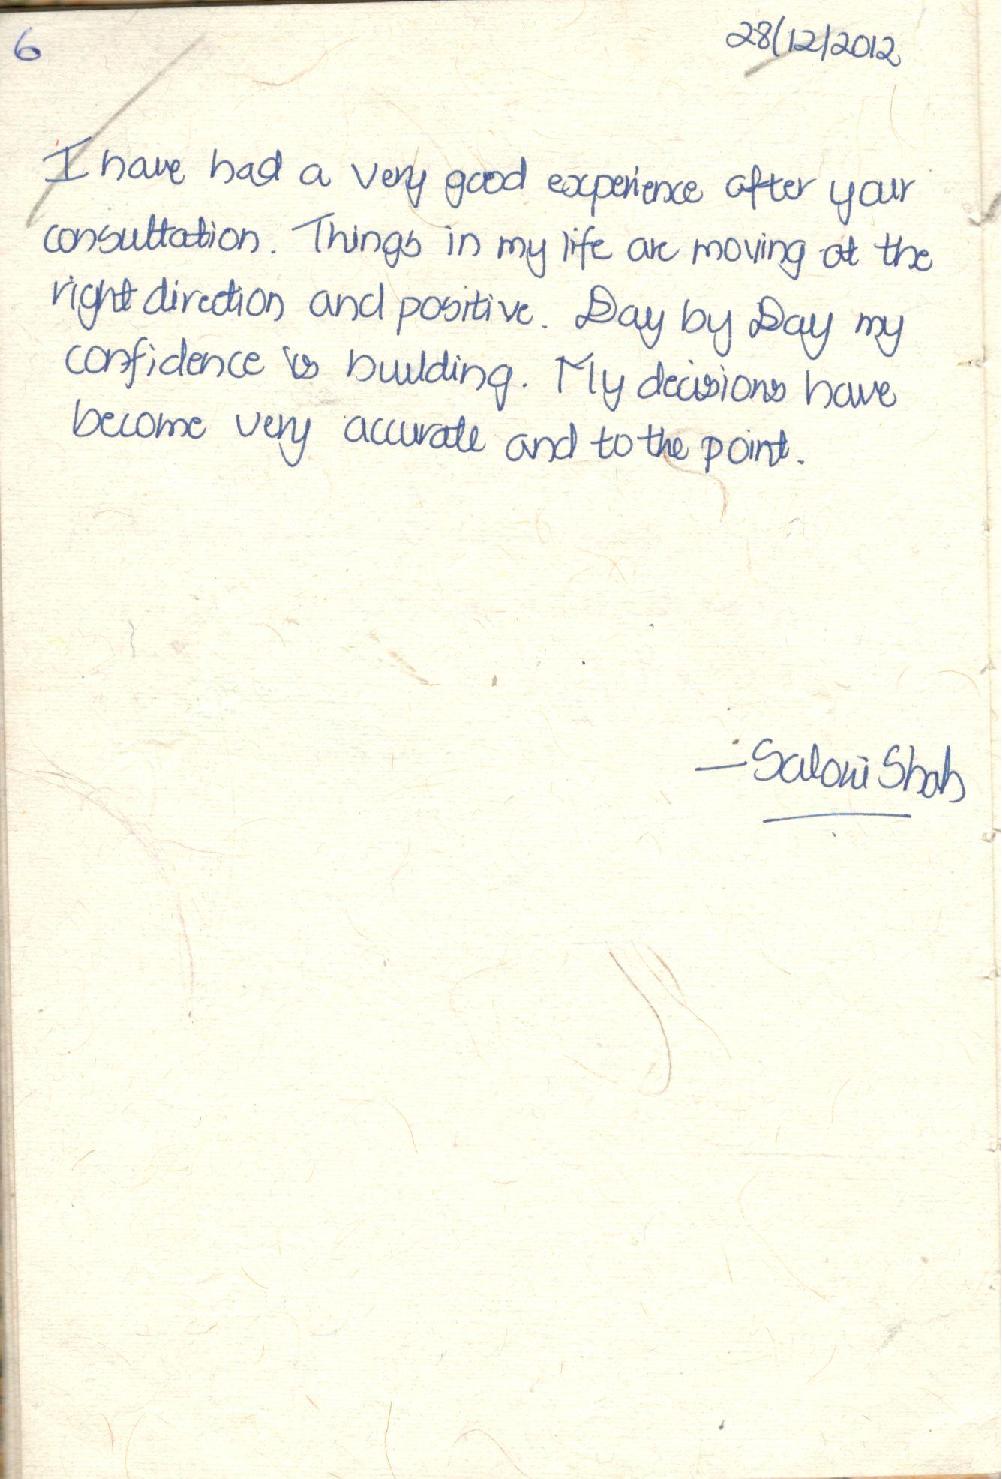 6
28/12/2012
I have had a very good experience after your
consultation. Things in my life are moving at the
right direction and positive. Day by Day my
confidence is building. My decisions have
become very accurate and to the point.
— Saloni Shah